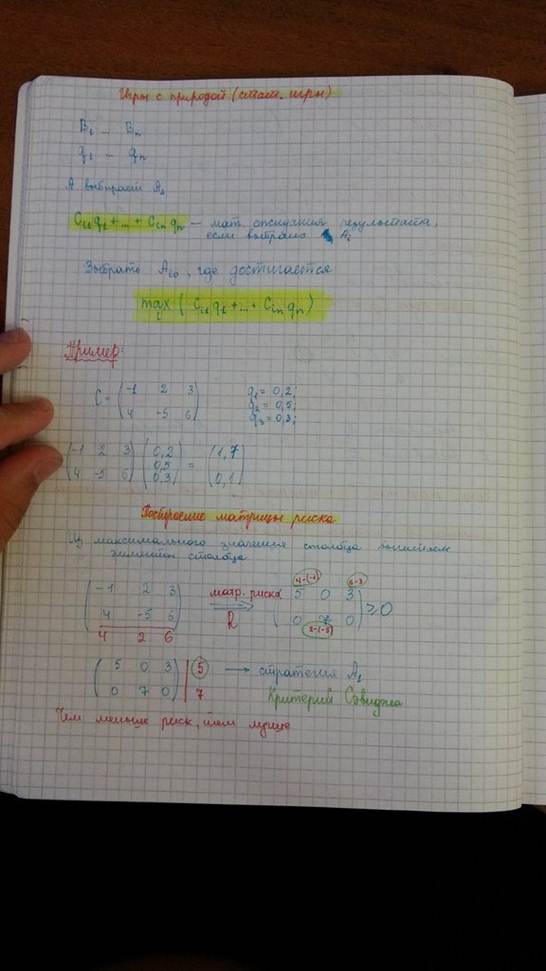 Игры с природой (стат. игры)
B₁ ... Bₙ
q₁ ... qₙ
А выбирает Aᵢ
Cᵢ₁q₁ + ... + Cᵢₙqₙ — мат. ожидания результата,
если выбрано Aᵢ
Выбрать Aᵢ₀, где достигается
max ( Cᵢ₁q₁ + ... + Cᵢₙqₙ )
i
Пример:
C = ( -1 2 3 ) q₁ = 0,2;
( 4 -5 6 ) q₂ = 0,5;
q₃ = 0,3;
( -1 2 3 ) ( 0,2 ) ( 1,7 )
( 4 -5 6 ) ( 0,5 ) = ( 0,1 )
( 0,3 )
Построение матрицы риска
Из максимального значения столбца вычитаем
элементы столбца
4-(-1) 6-3
( -1 2 3 ) матр. риска ( 5 0 3 )
( 4 -5 6 ) ⇒ R ( 0 7 0 ) ≥ 0
4 2 6 2-(-5)
( 5 0 3 ) | 5 → стратегия A₁
( 0 7 0 ) | 7 Критерий Сэвиджа
Чем меньше риск, тем лучше